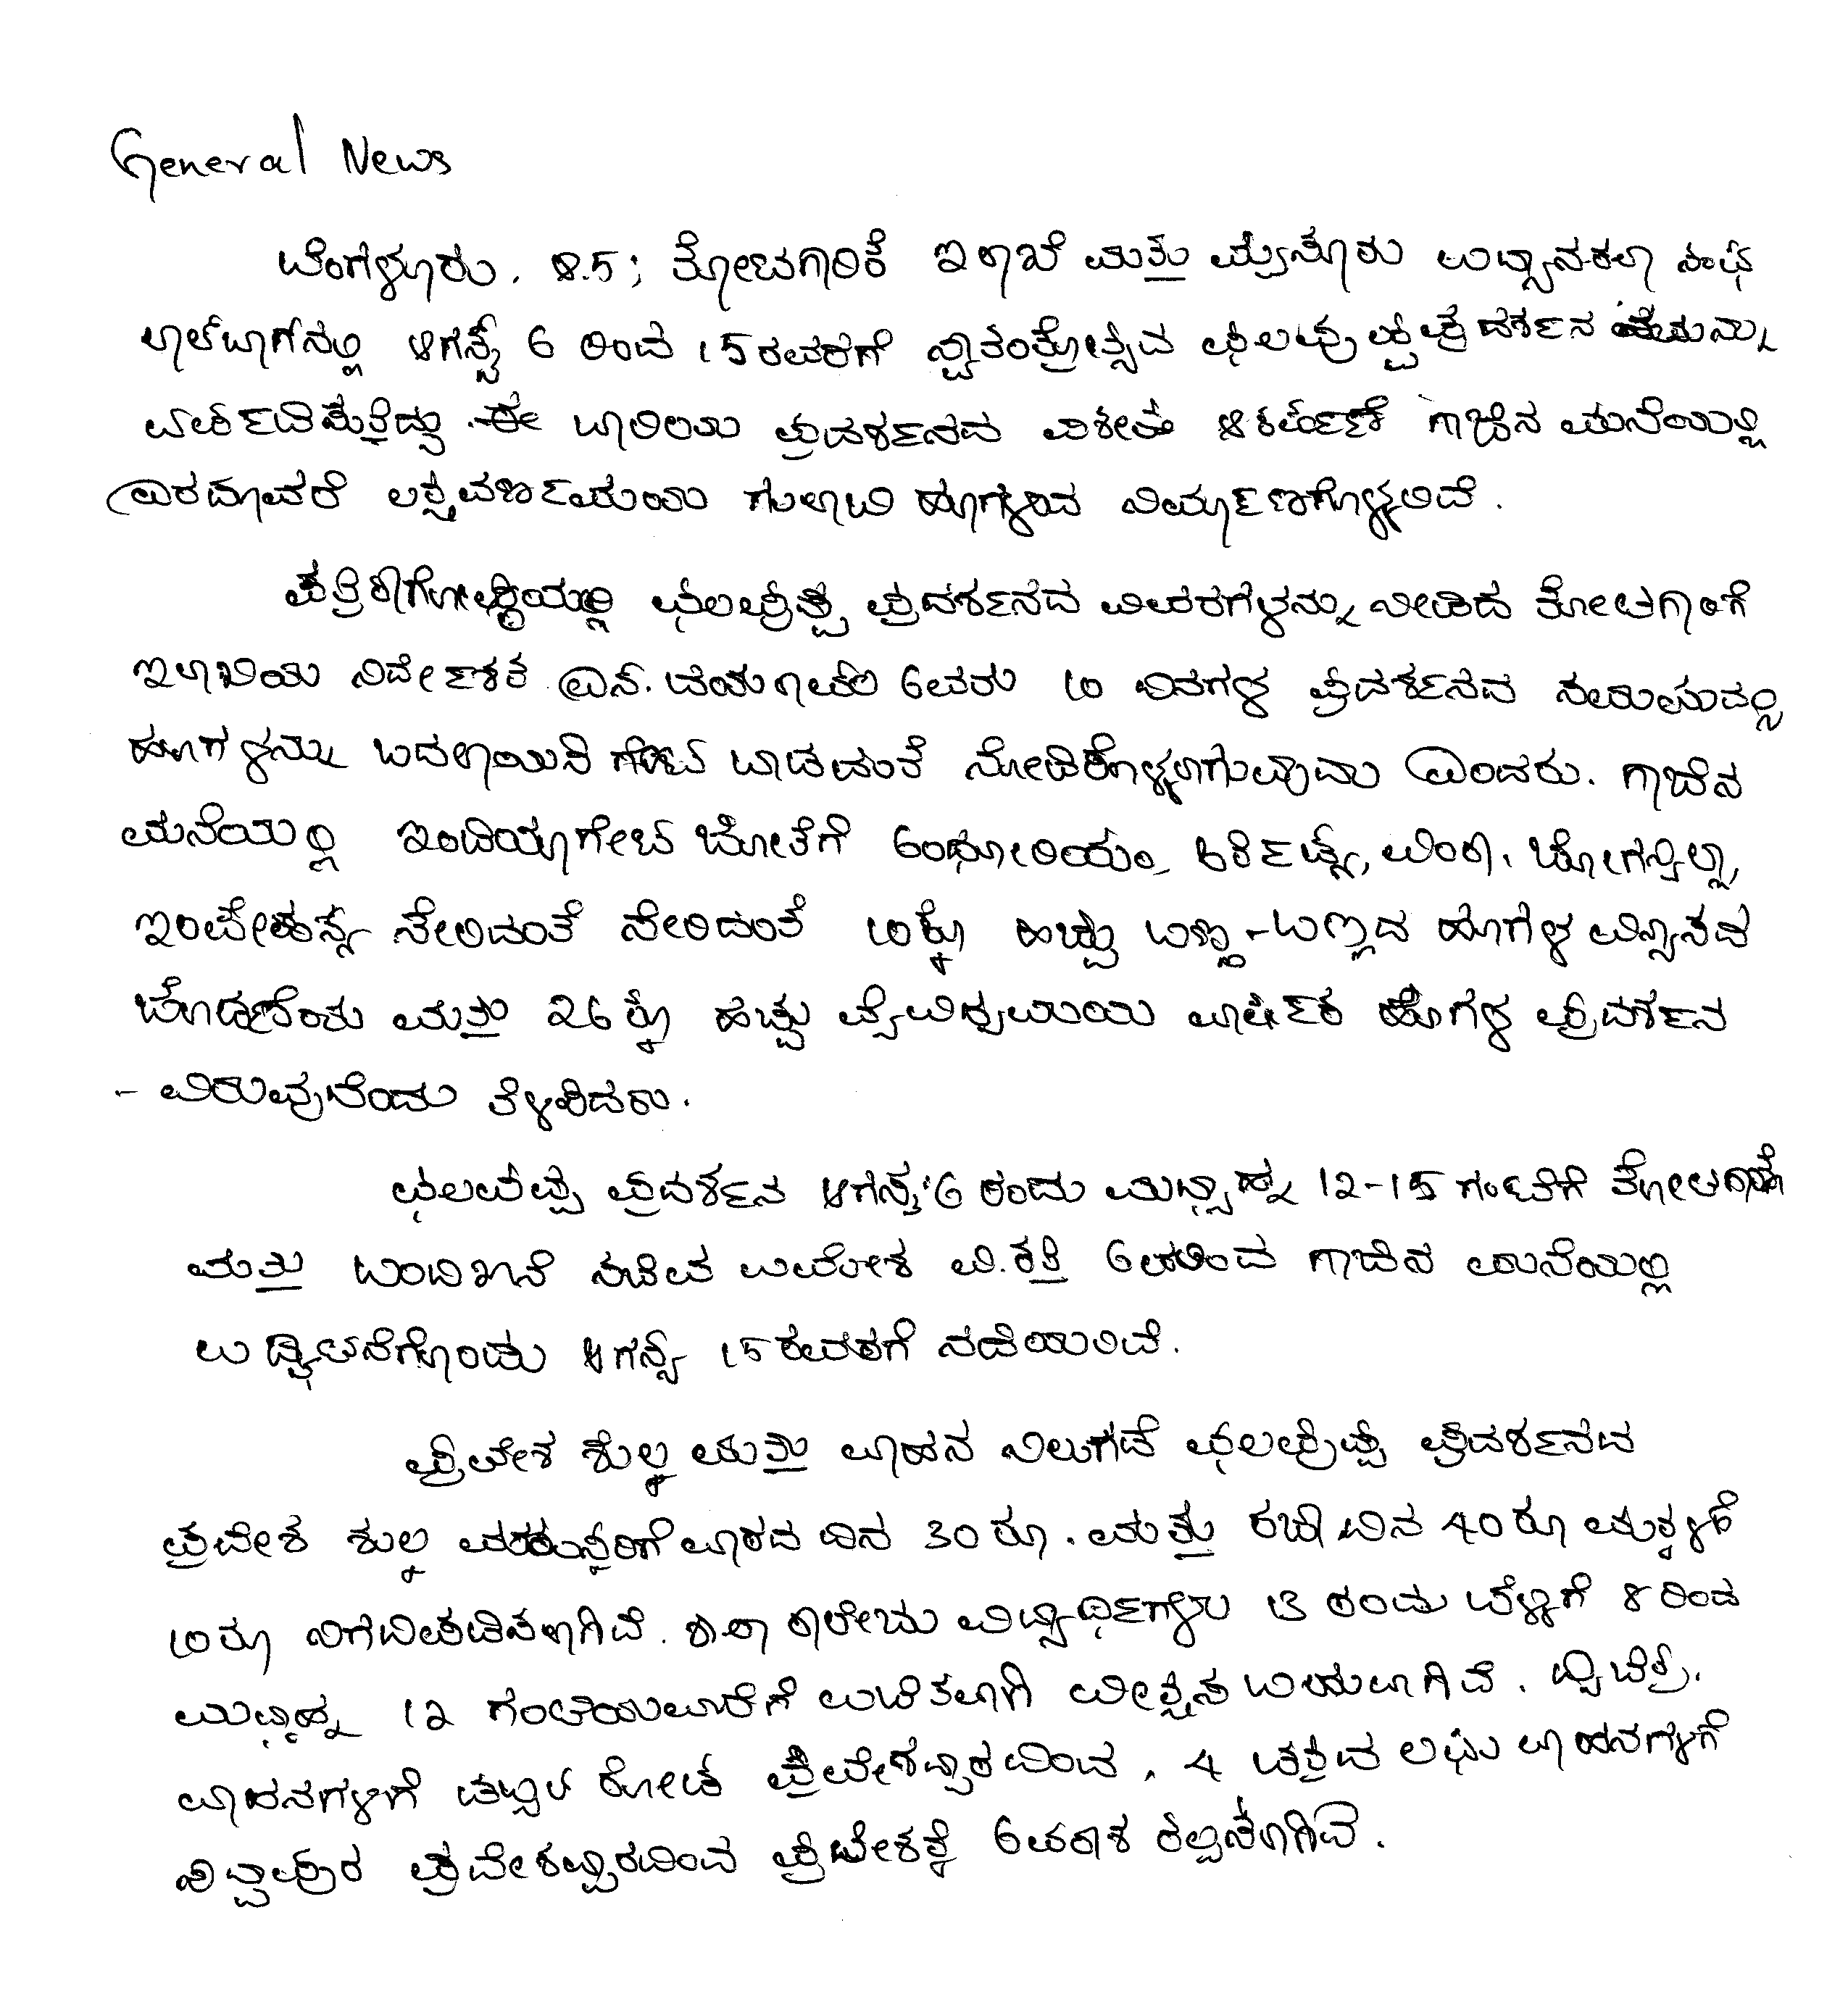 General News
ಬೆಂಗಳೂರು. ಆ.5; ತೋಟಗಾರಿಕೆ ಇಲಾಖೆ ಮತ್ತು ಮೈಸೂರು ಉದ್ಯಾನಕಲಾ ಸಂಘ
ಲಾಲ್‌ಬಾಗ್‌ನಲ್ಲಿ ಆಗಸ್ಟ್ 6 ರಿಂದ 15ರವರೆಗೆ ಸ್ವಾತಂತ್ರೋತ್ಸವ ಫಲಪುಷ್ಪ ಪ್ರದರ್ಶನ
ಏರ್ಪಡಿಸುತ್ತಿದ್ದು. ಈ ಬಾರಿಯ ಪ್ರದರ್ಶನದ ವಿಶೇಷ ಆಕರ್ಷಣೆ ಗಾಜಿನ ಮನೆಯಲ್ಲಿ
ವಿವರಗಳನ್ನು ನಿರ್ಮಾಣಗೊಳ್ಳಲಿದೆ.
ಪತ್ರಿಕಾಗೋಷ್ಠಿಯಲ್ಲಿ ಫಲಪುಷ್ಪ ಪ್ರದರ್ಶನದ ವಿವರಗಳನ್ನು ನೀಡಿದ ತೋಟಗಾರಿಕೆ
ಇಲಾಖೆಯ ನಿರ್ದೇಶಕ ಎನ್. ಜಯರಾಮ್ ಅವರು 10 ದಿನಗಳ ಪ್ರದರ್ಶನದ ಸಮಯದಲ್ಲಿ
ಹೂಗಳನ್ನು ಬದಲಾಯಿಸಿ ಬಾಡದಂತೆ ನೋಡಿಕೊಳ್ಳಲಾಗುವುದು ಎಂದರು. ಗಾಜಿನ
ಮನೆಯಲ್ಲಿ ಇಂಡಿಯಾಗೇಟ್ ಜೊತೆಗೆ ಅಂಥೂರಿಯಂ, ಆರ್ಕಿಡ್ಸ್, ವಿಂಕಾ, ಬೋಗನ್ವಿಲ್ಲಾ,
ಇಂಪೇಷನ್ಸ್ ಸೇರಿದಂತೆ ಸೇರಿದಂತೆ 10ಕ್ಕೂ ಹೆಚ್ಚು ಬಣ್ಣ-ಬಣ್ಣದ ಹೂಗಳ ವಿನ್ಯಾಸದ
ಜೋಡಣೆಯ ಮತ್ತು 26ಕ್ಕೂ ಹೆಚ್ಚು ವೈವಿಧ್ಯಮಯ ವಾರ್ಷಿಕ ಹೂಗಳ ಪ್ರದರ್ಶನ
- ವಿರುವುದೆಂದು ತಿಳಿಸಿದರು.
ಫಲಪುಷ್ಪ ಪ್ರದರ್ಶನ ಆಗಸ್ಟ್ 6 ರಂದು ಮಧ್ಯಾಹ್ನ 12-15 ಗಂಟೆಗೆ ತೋಟಗಾರಿಕೆ
ಮತ್ತು ಬಂದಿಖಾನೆ ಸಚಿವ ಉಮೇಶ ವಿ.ಕತ್ತಿ ಅವರಿಂದ ಗಾಜಿನ ಮನೆಯಲ್ಲಿ
ಉದ್ಘಾಟನೆಗೊಂಡು ಆಗಸ್ಟ್ 15ರವರೆಗೆ ನಡೆಯಲಿದೆ.
ಪ್ರವೇಶ ಶುಲ್ಕ ಮತ್ತು ವಾಹನ ನಿಲುಗಡೆ ಫಲಪುಷ್ಪ ಪ್ರದರ್ಶನದ
ಪ್ರವೇಶ ಶುಲ್ಕ ವಯಸ್ಕರಿಗೆ ವಾರದ ದಿನ 30ರೂ. ಮತ್ತು ರಜಾ ದಿನ 40ರೂ ಮಕ್ಕಳಿಗೆ
10ರೂ ನಿಗದಿಪಡಿಸಲಾಗಿದೆ. ಶಾಲಾ ಕಾಲೇಜು ವಿದ್ಯಾರ್ಥಿಗಳು 13 ರಂದು ಬೆಳ್ಳಗೆ 8ರಿಂದ
ಮಧ್ಯಾಹ್ನ 12 ಗಂಟೆಯವರೆಗೆ ಉಚಿತವಾಗಿ ವೀಕ್ಷಿಸಬಹುದಾಗಿದೆ. ದ್ವಿಚಕ್ರ
ವಾಹನಗಳಿಗೆ ಡಬ್ಬಲ್ ರೋಡ್ ಪ್ರವೇಶದ್ವಾರದಿಂದ, 4 ಚಕ್ರದ ಲಘು ವಾಹನಗಳಿಗೆ
ಸಿದ್ದಾಪುರ ಪ್ರವೇಶದ್ವಾರದಿಂದ ಪ್ರವೇಶಕ್ಕೆ ಅವಕಾಶ ಕಲ್ಪಿಸಲಾಗಿದೆ.